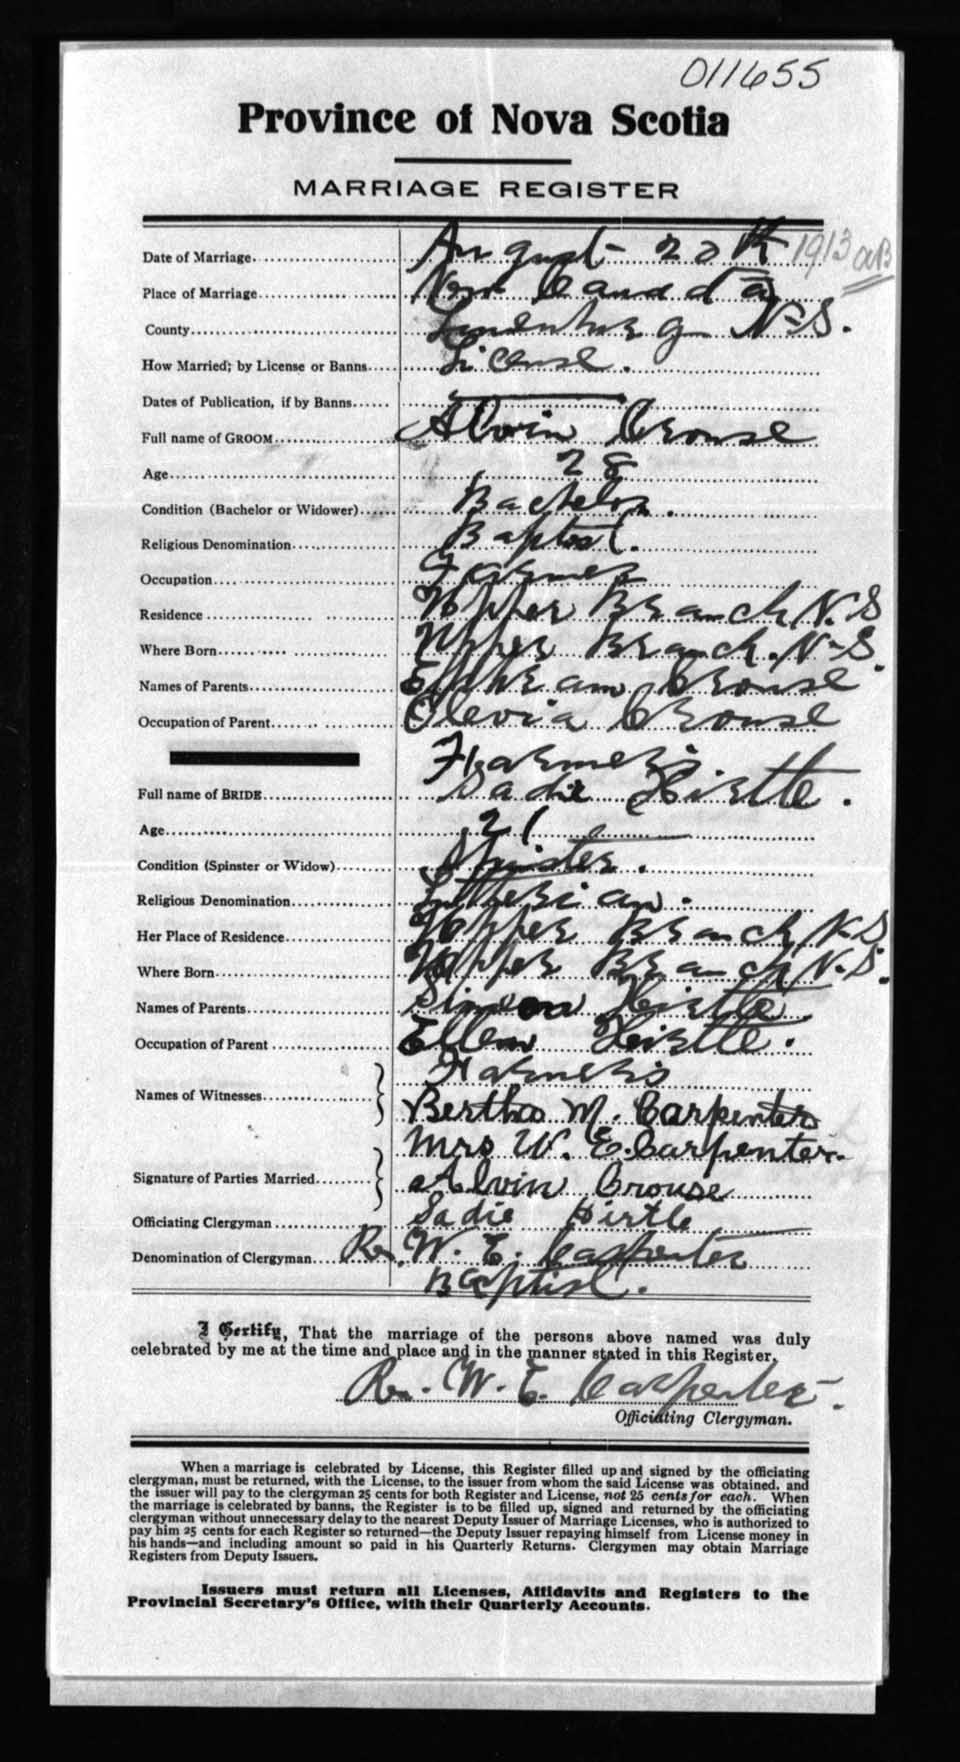 011655
Province of Nova Scotia
MARRIAGE REGISTER
Date of Marriage August 20th 1913 aB
Place of Marriage New Canada
County Lunenburg N-S.
How Married; by License or Banns License.
Dates of Publication, if by Banns
Full name of GROOM Alvin Crouse
Age 28
Condition (Bachelor or Widower) Bachelor.
Religious Denomination Baptist.
Occupation Farmer
Residence Upper Branch N.S
Where Born Upper Branch. N-S.
Names of Parents Ephream Crouse
Occupation of Parent Olevia Crouse
Farmers
Full name of BRIDE Sadie Hirtle.
Age 21
Condition (Spinster or Widow) Spinster.
Religious Denomination Lutherian.
Her Place of Residence Upper Branch N.S
Where Born Upper Branch N.S.
Names of Parents Simeon Hirtle
Occupation of Parent Ellen Hirtle.
Farmers
Names of Witnesses Bertha M. Carpenter
Mrs W. E. Carpenter.
Signature of Parties Married Alvin Crouse
Officiating Clergyman Sadie Hirtle
Denomination of Clergyman Rev. W. E. Carpenter
Baptist.
I Certify, That the marriage of the persons above named was duly
celebrated by me at the time and place and in the manner stated in this Register.
Rev. W. E. Carpenter.
Officiating Clergyman.
When a marriage is celebrated by License, this Register filled up and signed by the officiating
clergyman, must be returned, with the License, to the issuer from whom the said License was obtained, and
the issuer will pay to the clergyman 25 cents for both Register and License, not 25 cents for each. When
the marriage is celebrated by banns, the Register is to be filled up, signed and returned by the officiating
clergyman without unnecessary delay to the nearest Deputy Issuer of Marriage Licenses, who is authorized to
pay him 25 cents for each Register so returned—the Deputy Issuer repaying himself from License money in
his hands—and including amount so paid in his Quarterly Returns. Clergymen may obtain Marriage
Registers from Deputy Issuers.
Issuers must return all Licenses, Affidavits and Registers to the
Provincial Secretary's Office, with their Quarterly Accounts.